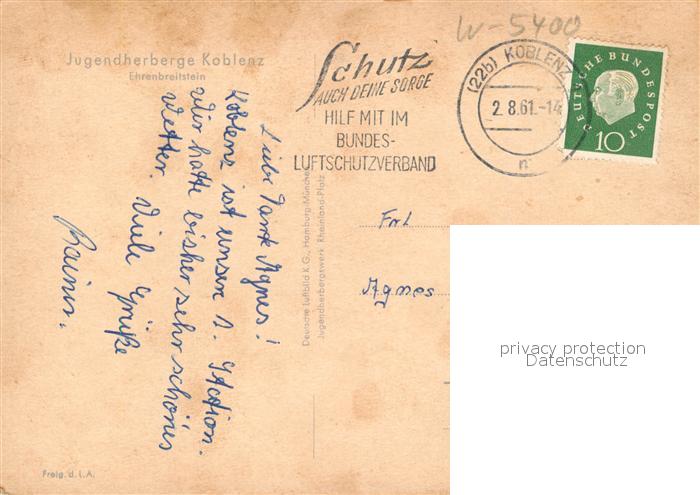 Jugendherberge Koblenz
Ehrenbreitstein
W-5400
Schutz
AUCH DEINE SORGE
HILF MIT IM
BUNDES-
LUFTSCHUTZVERBAND
(22b) KOBLENZ
2.8.61.-14
n
DEUTSCHE BUNDESPOST
10
Liebe Tante Agnes!
Koblenz ist unsere 1. Station.
Wir hatte bisher sehr schönes
Wetter. Viele Grüße
Rainer.
Deutsche Luftbild K.G., Hamburg-München
Jugendherbergswerk Rheinland-Pfalz
Frl
Agnes
privacy protection
Datenschutz
Freig. d. L.A.